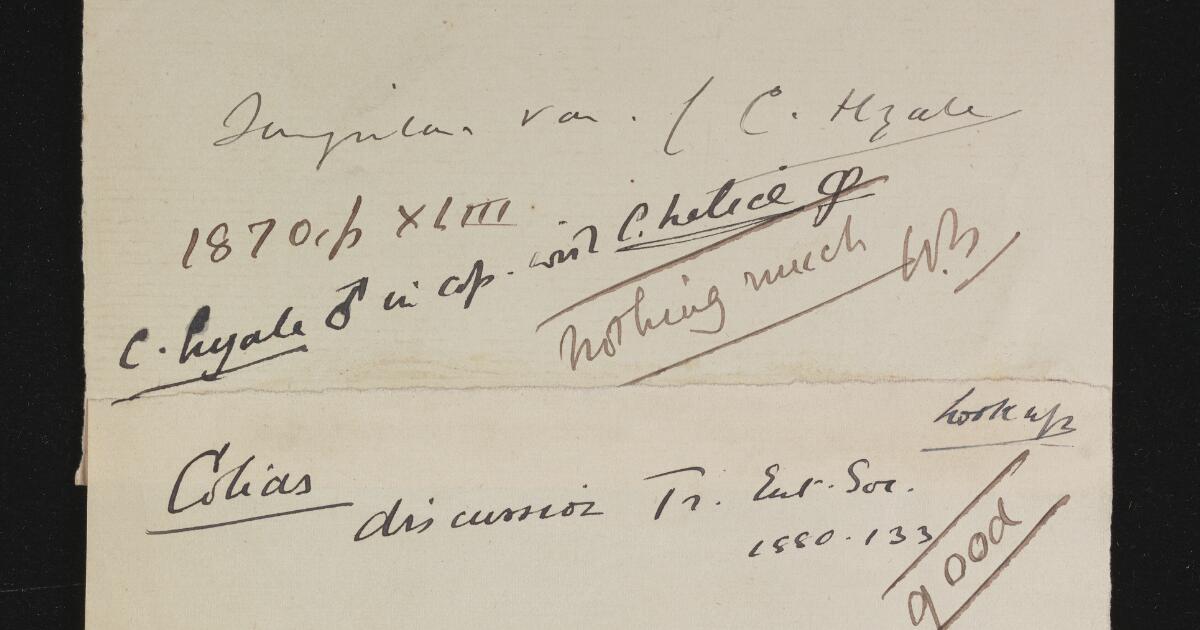 Singular var. f C. Hyale
1870, p XLIII
C. hyale ♂ in cop. with C. helice ♀
nothing much W.B
look up
Colias discussion Tr. Ent. Soc.
1880. 133
good